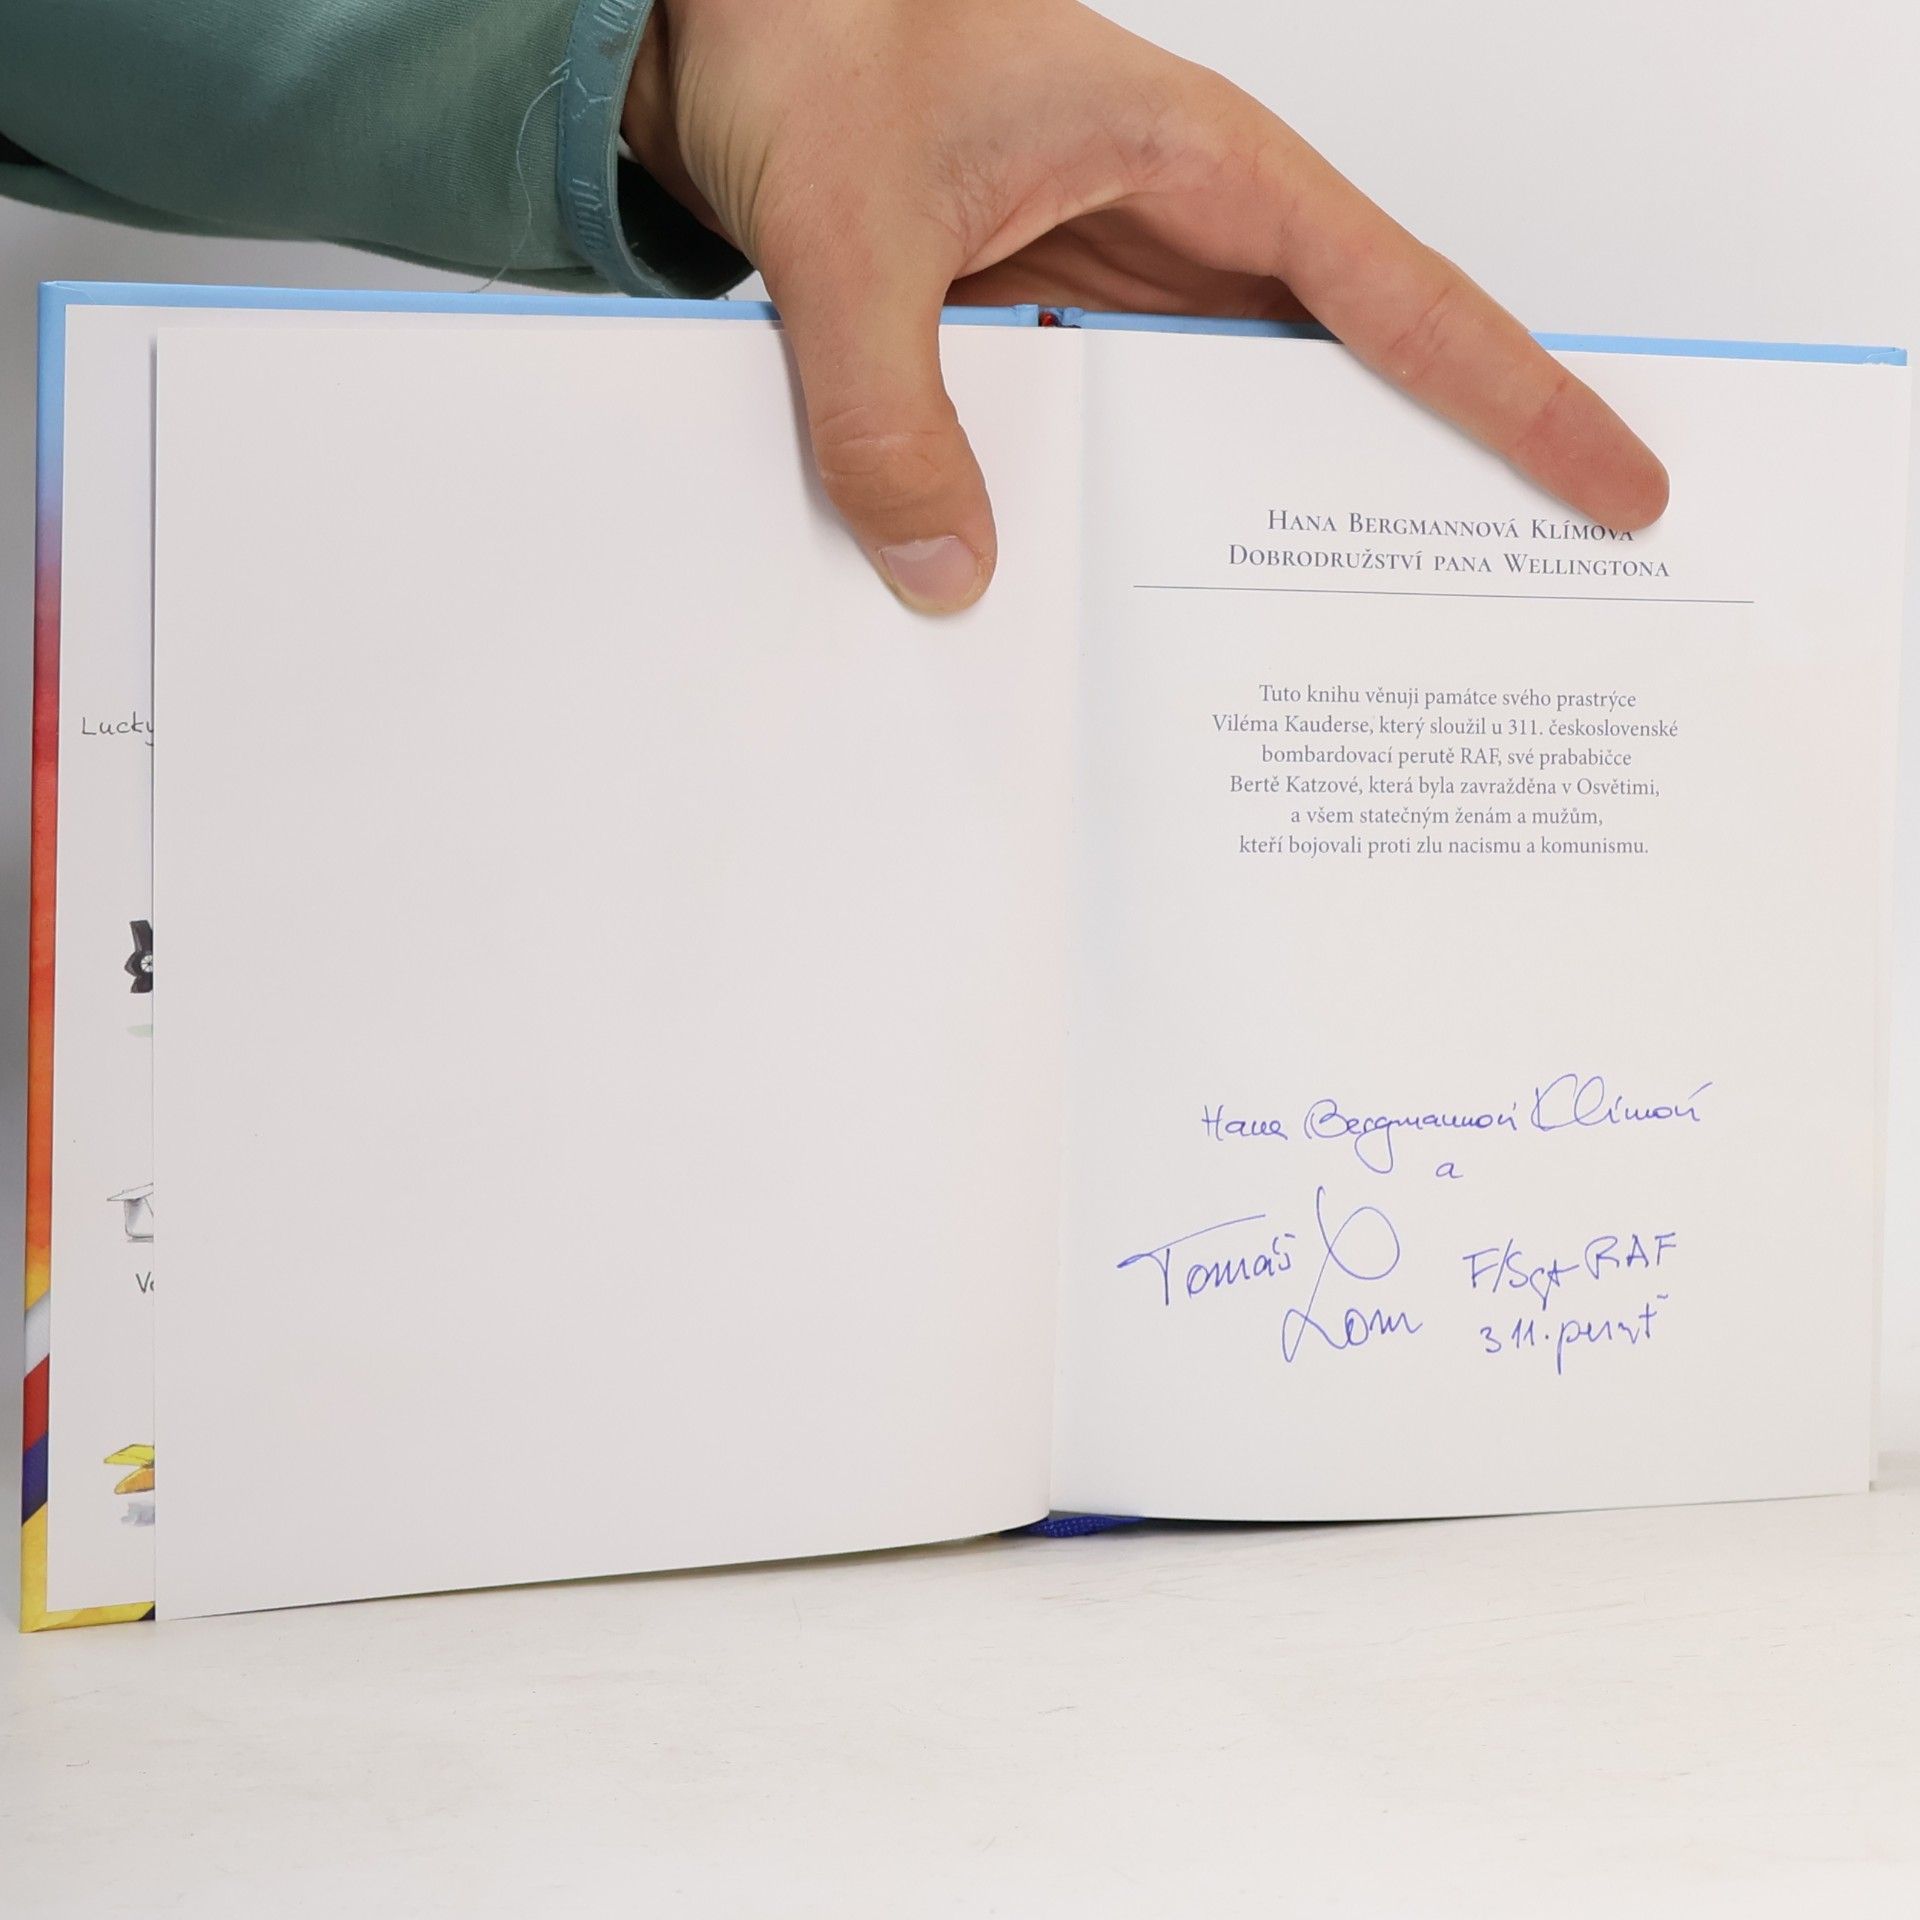 Lucky
HANA BERGMANNOVÁ KLÍMOVÁ
DOBRODRUŽSTVÍ PANA WELLINGTONA
Tuto knihu věnuji památce svého prastrýce
Viléma Kauderse, který sloužil u 311. československé
bombardovací perutě RAF, své prababičce
Bertě Katzové, která byla zavražděna v Osvětimi,
a všem statečným ženám a mužům,
kteří bojovali proti zlu nacismu a komunismu.
Hana Bergmannová Klímová
a
Tomáš
Lom
F/Sgt RAF
311. peruť